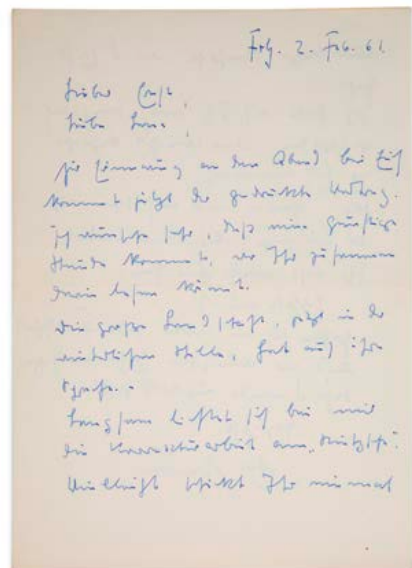 Frbg. 2. Feb. 61.
Lieber Ernst,
Liebe
zur Erinnerung an den Abend bei Euch
kommt jetzt der gedruckte Vortrag.
Ich wünschte sehr, daß eine günstige
Stunde kommt, wo Ihr zusammen
darin lesen könnt.
Die große Landschaft, jetzt in der
winterlichen Stille, hat auch ihre
Sprache. -
Langsam lichtet sich bei mir
die Korrekturarbeit am „Nietzsche“.
Vielleicht Ihr einmal